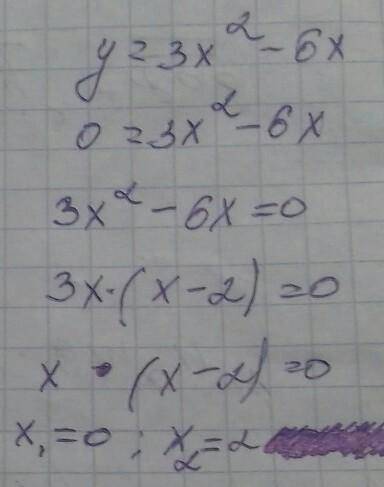 y = 3x² - 6x
0 = 3x² - 6x
3x² - 6x = 0
3x·(x - 2) = 0
x · (x - 2) = 0
x₁ = 0 ; x₂ = 2